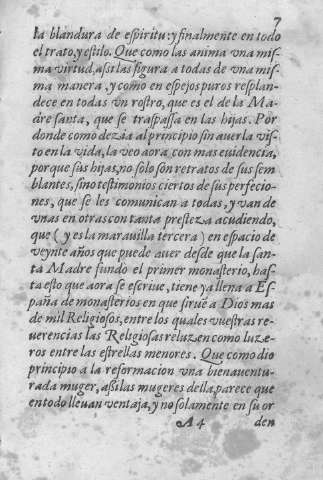 7
la blandura de eſpiritu: y finalmente en todo
el trato, y eſtilo. Que como las anima vna miſ-
ma virtud, aſsi las figura a todas de vna miſ-
ma manera, y como en eſpejos puros reſplan-
dece en todas vn roſtro, que es el de la Ma-
dre ſanta, que ſe traſpaſſa en las hijas. Por
donde como dezia al principio ſin auerla viſ-
to en la vida, la veo aora con mas euidencia,
porque ſus hijas, no ſolo ſon retratos de ſus ſem
blantes, ſino teſtimonios ciertos de ſus perfecio-
nes, que ſe les comunican a todas, y van de
vnas en otras con tanta preſteza acudiendo,
que (y es la marauilla tercera) en eſpacio de
veynte años que puede auer deſde que la ſan-
ta Madre fundo el primer monaſterio, haſ-
ta eſto que aora ſe eſcriue, tiene ya llena a Eſ-
paña de monaſterios en que ſirue a Dios mas
de mil Religioſos, entre los quales vueſtras re-
uerencias las Religioſas reluzen como luze-
ros entre las eſtrellas menores. Que como dio
principio a la reformacion vna bienauentu-
rada muger, aſsi las mugeres della parece que
en todo lleuan ventaja, y no ſolamente en ſu or
A 4 den